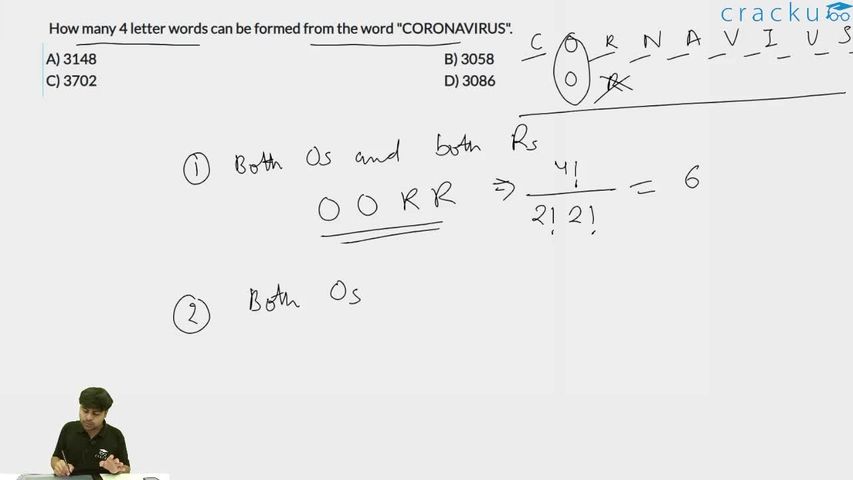 cracku
How many 4 letter words can be formed from the word "CORONAVIRUS".
A) 3148 B) 3058
C) 3702 D) 3086
C O R N A V I U S
O R
① Both Os and both Rs
O O R R ⇒ 4! / 2! 2! = 6
② Both Os